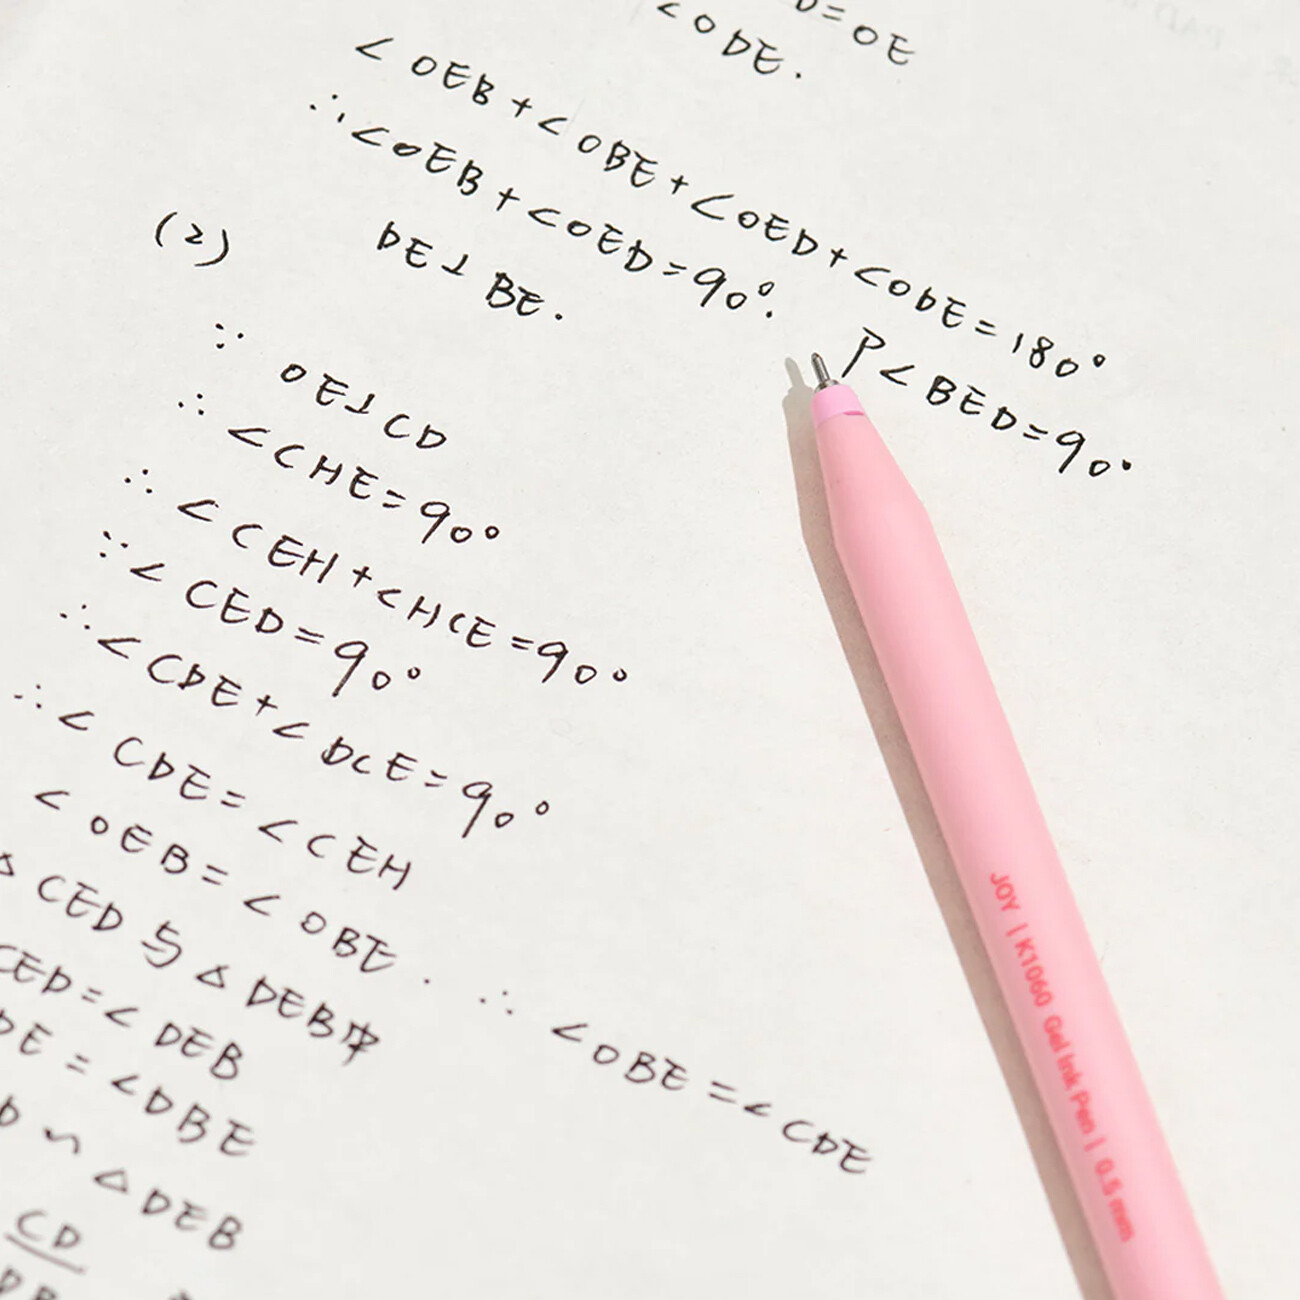 D=OE
<ODE.
<OEB+<OBE+<OED+<ODE=180°
∴<OEB+<OED=90°. P<BED=90°
DE⊥BE.
(2)
∵ OE⊥CD
∴ <CHE=90°
∴ <CEH+<HCE=90°
∵<CED=90°
∴<CDE+<DCE=90°
∴<CDE=<CEH
<OEB=<OBE. ∴ <OBE=<CDE
△CED与△DEB中
CED=<DEB
DE=<DBE
D∽△DEB
CD
DB
JOY | K1060 Gel Ink Pen | 0.5 mm